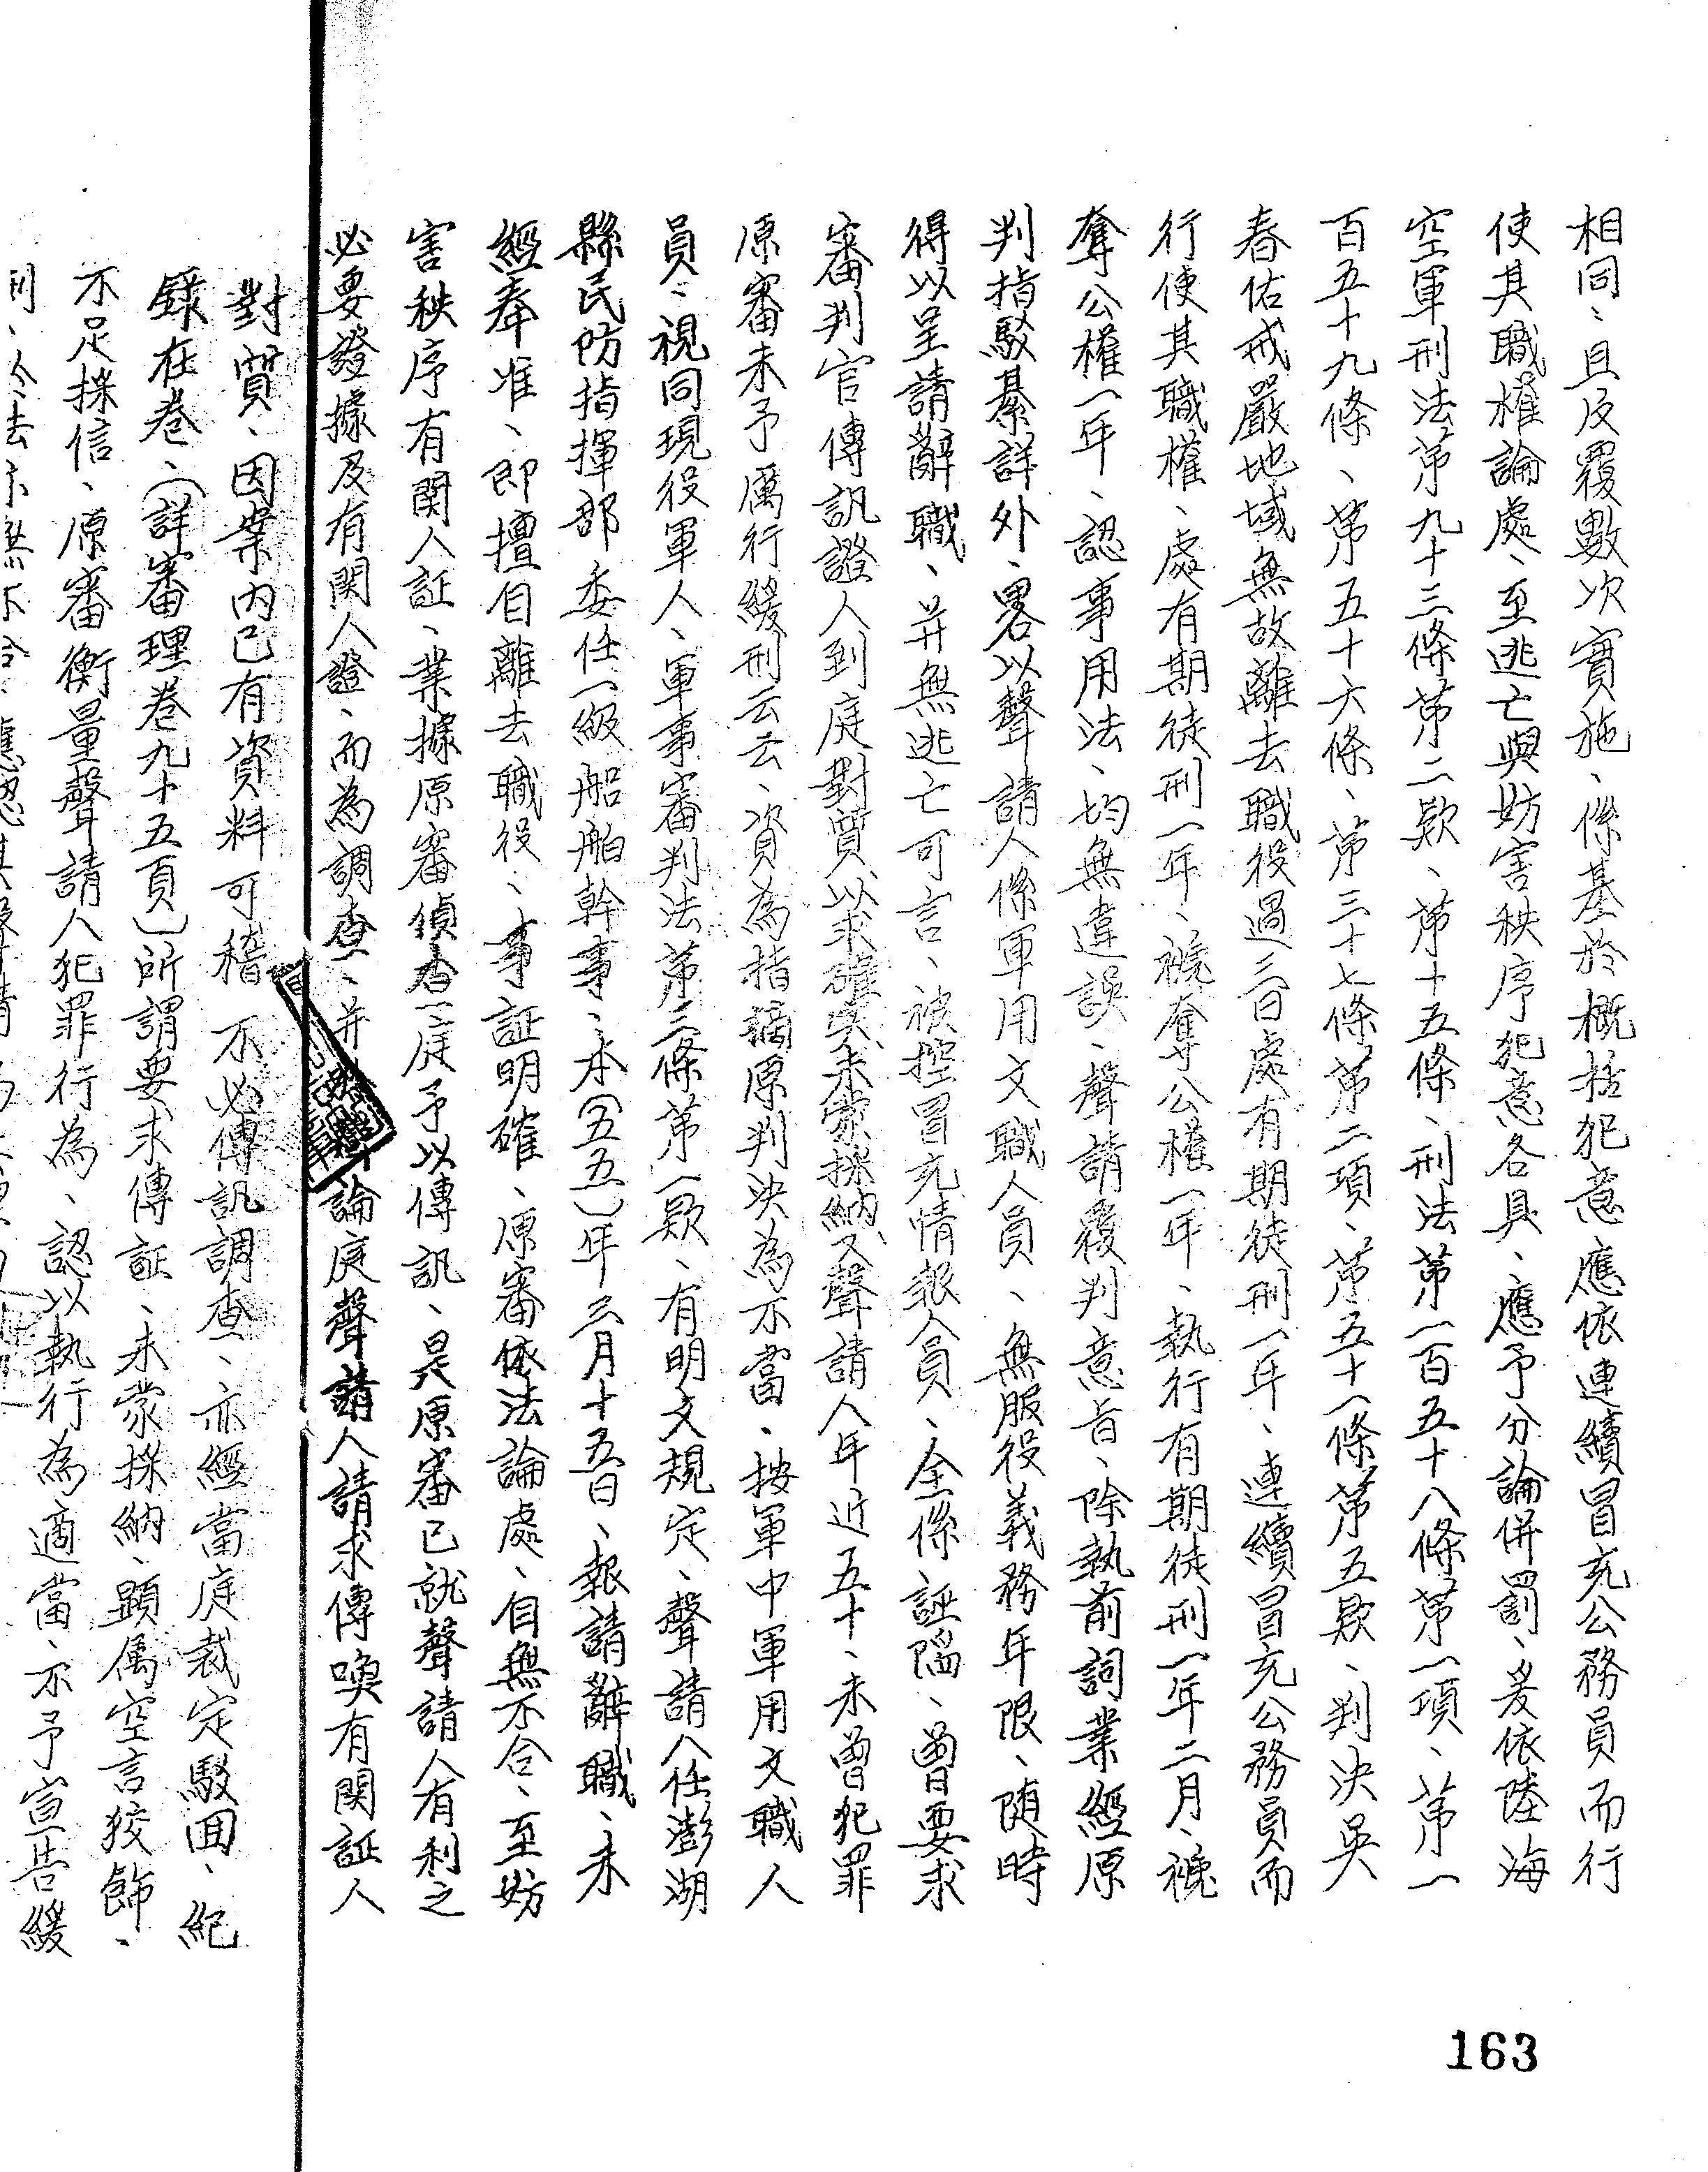 相同、且反覆數次實施、係基於概括犯意應依連續冒充公務員而行
使其職權論處、至逃亡與妨害秩序犯意各具、應予分論併罰、爰依陸海
空軍刑法第九十三條第二款、第十五條、刑法第一百五十八條第一項、第一
百五十九條、第五十六條、第三十七條第二項、第五十一條第五款、判決吳
春佑戒嚴地域無故離去職役過三日處有期徒刑一年、連續冒充公務員而
行使其職權、處有期徒刑一年、褫奪公權一年、執行有期徒刑一年二月、褫
奪公權一年、認事用法、均無違誤、聲請覆判意旨、除執前詞業經原
判指駁綦詳外、畧以聲請人係軍用文職人員、無服役義務年限、随時
得以呈請辭職、并無逃亡可言、被控冒充情報人員、全係誣陷、曾要求
審判官傳訊證人到庭對質、以求確實、未蒙採納、又聲請人年近五十、未曾犯罪
原審未予厲行緩刑云云、資為指摘原判決為不當、按軍中軍用文職人
員、視同現役軍人、軍事審判法第三條第一款、有明文規定、聲請人任澎湖
縣民防指揮部委任一級船舶幹事、本(五五)年三月十五日、報請辭職、未
經奉准、即擅自離去職役、事証明確、原審依法論處、自無不合、至妨
害秩序有関人証、業據原審偵查庭予以傳訊、是原審已就聲請人有利之
必要證據及有関人證、而為調查、并 論庭聲請人請求傳喚有関証人
對質、因案內已有資料可稽 不必傳訊調查、亦經當庭裁定駁回、紀
錄在卷、(詳審理卷九十五頁)所謂要求傳証、未蒙採納、顯属空言狡飾、
不足採信、原審衡量聲請人犯罪行為、認以執行為適當、不予宣告緩
刑、
163